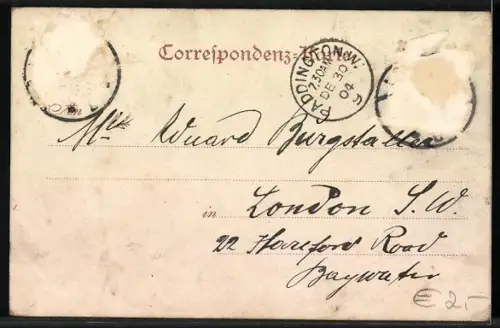 Correspondenz-Karte
PADDINGTON.W.
7.30AM
DE 30
04
Eduard Burgstaller
in London S.W.
22 Hereford Road
Bayswater
€ 2,-